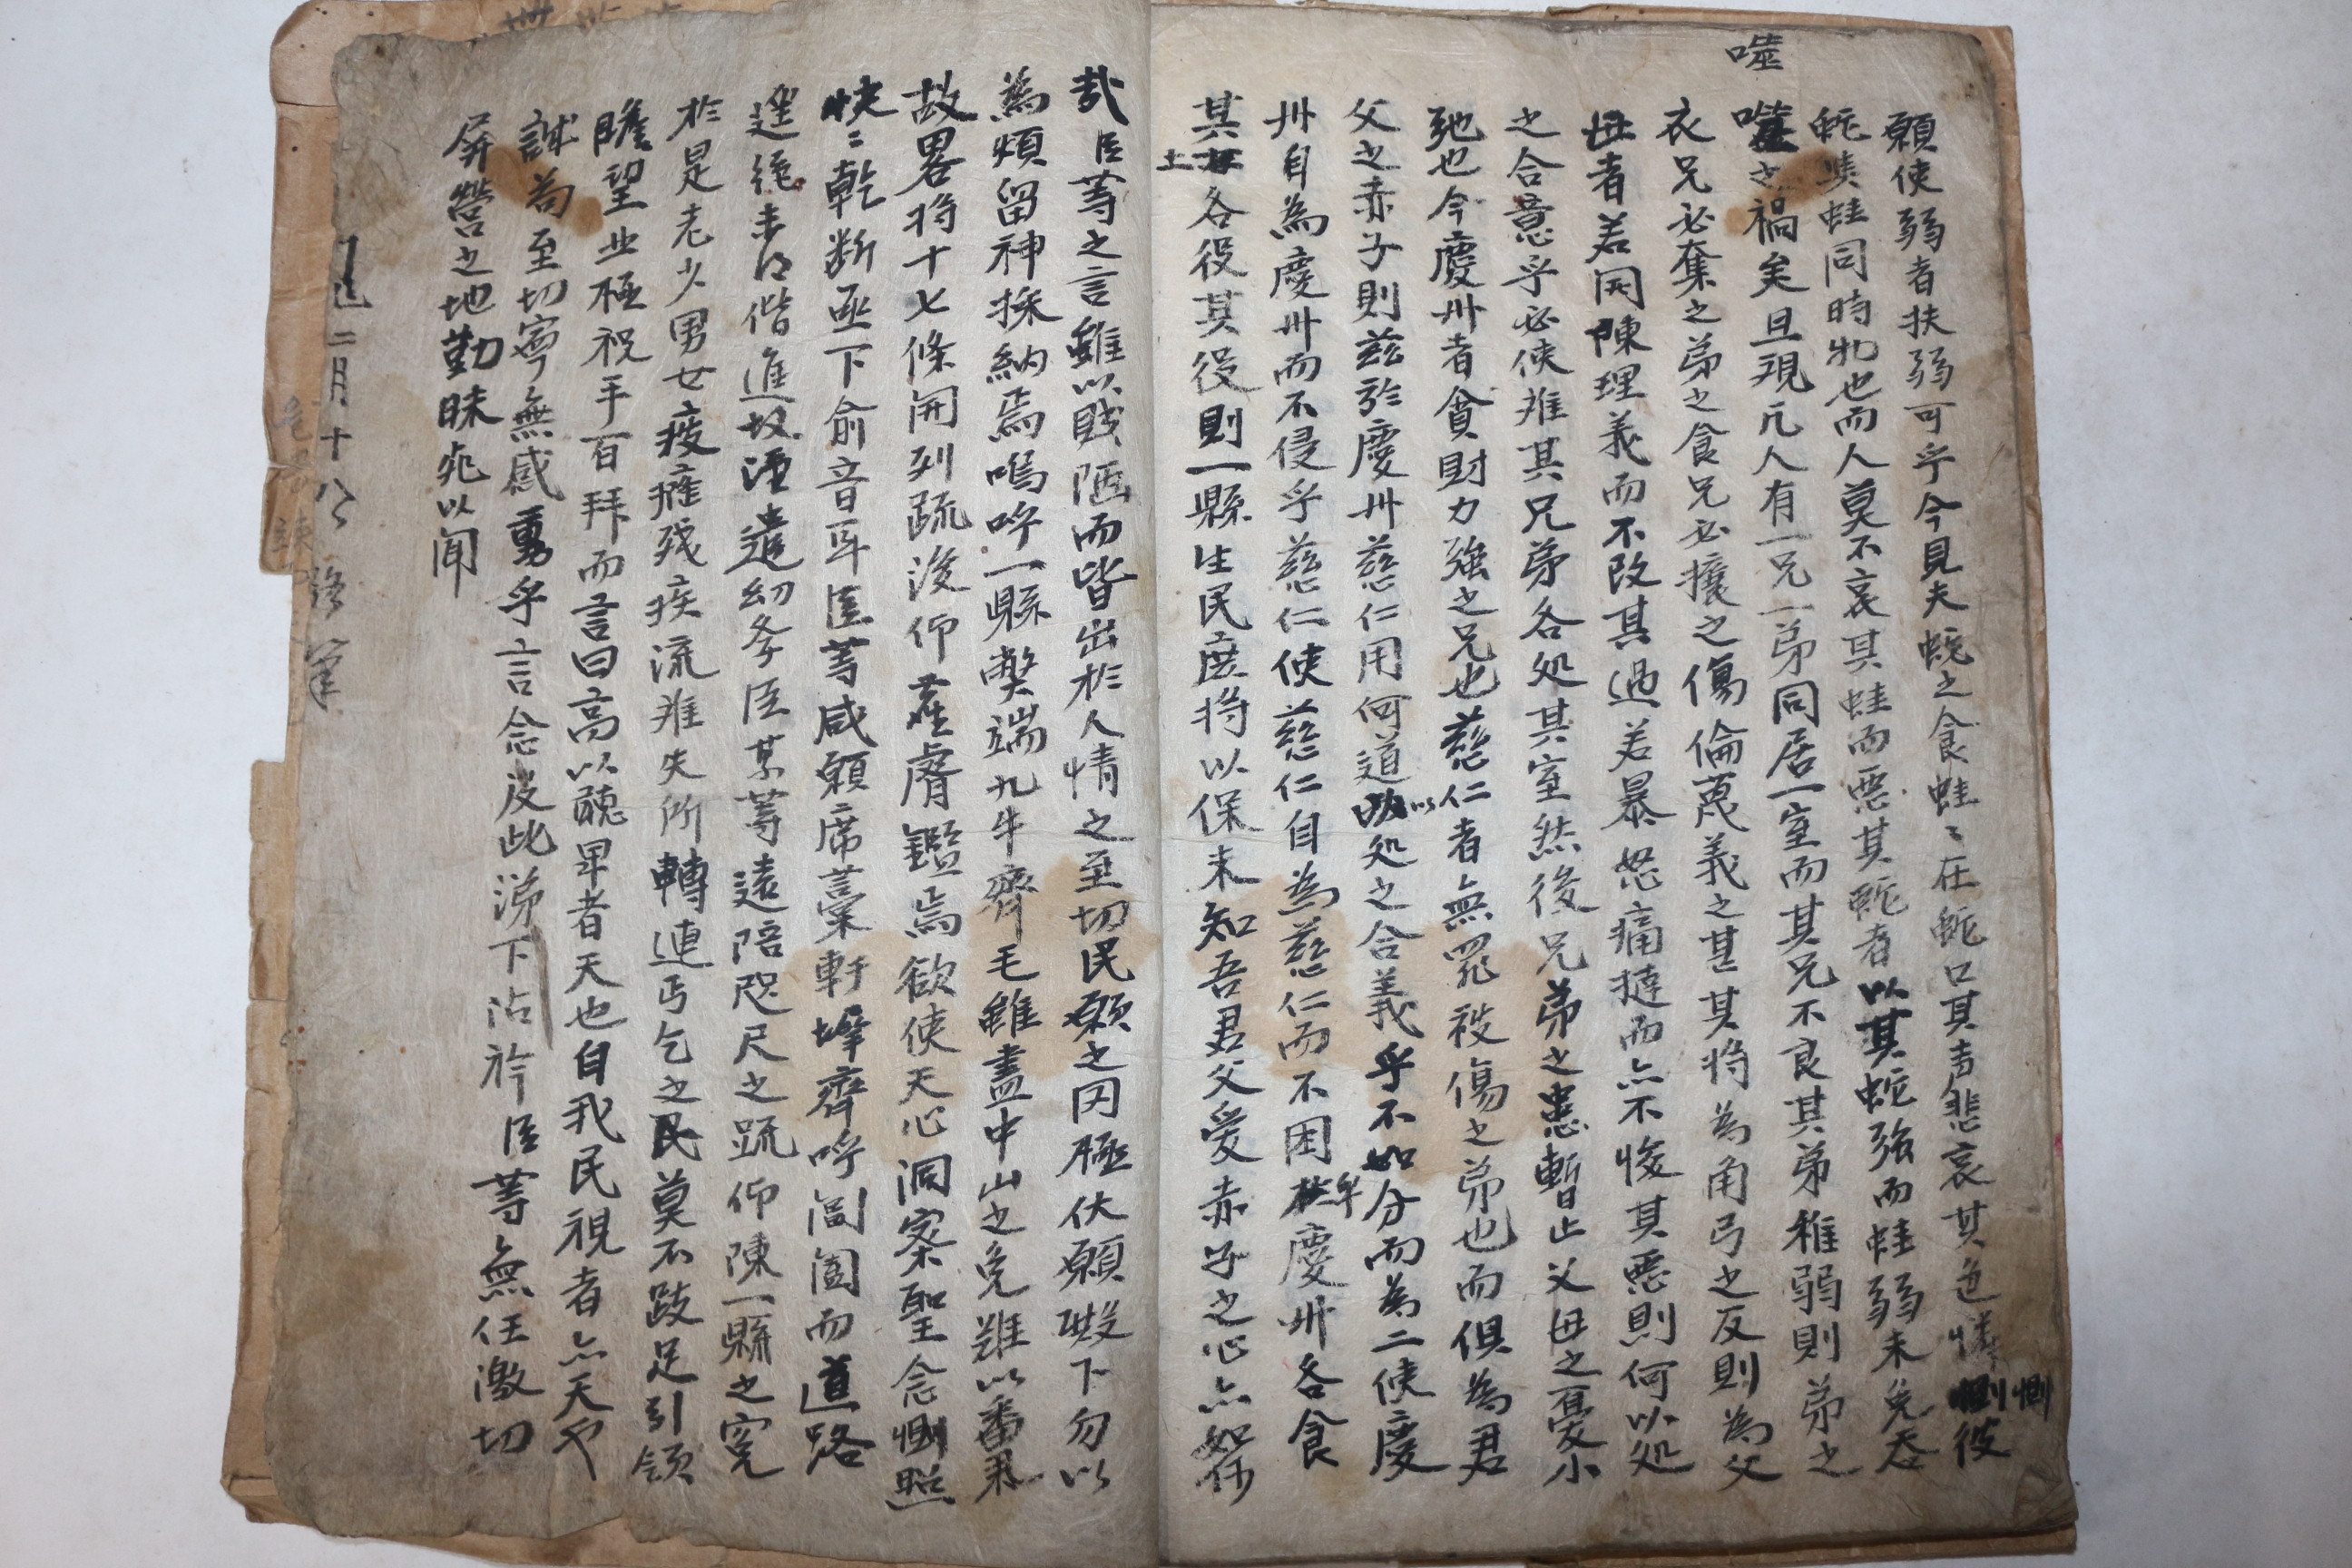 願使弱者扶弱可乎今見夫蛇之食蛙〻在蛇口其声悲哀其色慘惻彼
蛇與蛙同時物也而人莫不哀其蛙而惡其蛇者以其蛇強而蛙弱未免吞
噬
噬之禍矣且現凡人有一兄一弟同居一室而其兄不良其弟稚弱則弟之
衣兄必奪之弟之食兄必攘之傷倫蔑義之甚其將為角弓之反則為父
母者若開陳理義而不改其過若暴怒痛撻而亦不悛其惡則何以処
之合意乎必使難其兄弟各処其室然後兄弟之患暫止父母之憂小
弛也今慶州者貪財力強之兄也慈仁者無罪被傷之弟也而俱為君
父之赤子則茲於慶州慈仁用何道以処之合義乎不如分而為二使慶
州自為慶州而不侵乎慈仁使慈仁自為慈仁而不困於慶州各食
其土各役其役則一縣生民庶將以保未知吾君父愛赤子之心亦如何
哉臣等之言雖以賤陋而皆出於人情之至切民願之罔極伏願殿下勿以
為煩留神採納焉嗚呼一縣弊端九牛齊毛雖盡中山之兔難以番
故畧將十七條開列疏後仰在膚鑑焉欲使天心洞察聖念惻照
快〻乾断亟下俞音耳臣等咸願席藁軒墀齊呼閶闔而道路
逶絶未得偕進故湮遣幼孝臣某等遠陪咫尺之疏仰陳一縣之寃
於是老少男女疲癃残疾流難失所轉連丐乞之民莫不跂足引領
瞻望北極祝手百拜而言曰高以聽卑者天也自我民視者亦天也
誠為至切寧無感動乎言念及此涕下沾衿臣等無任激切
屏營之地勤昧死以聞
二月十八
筆